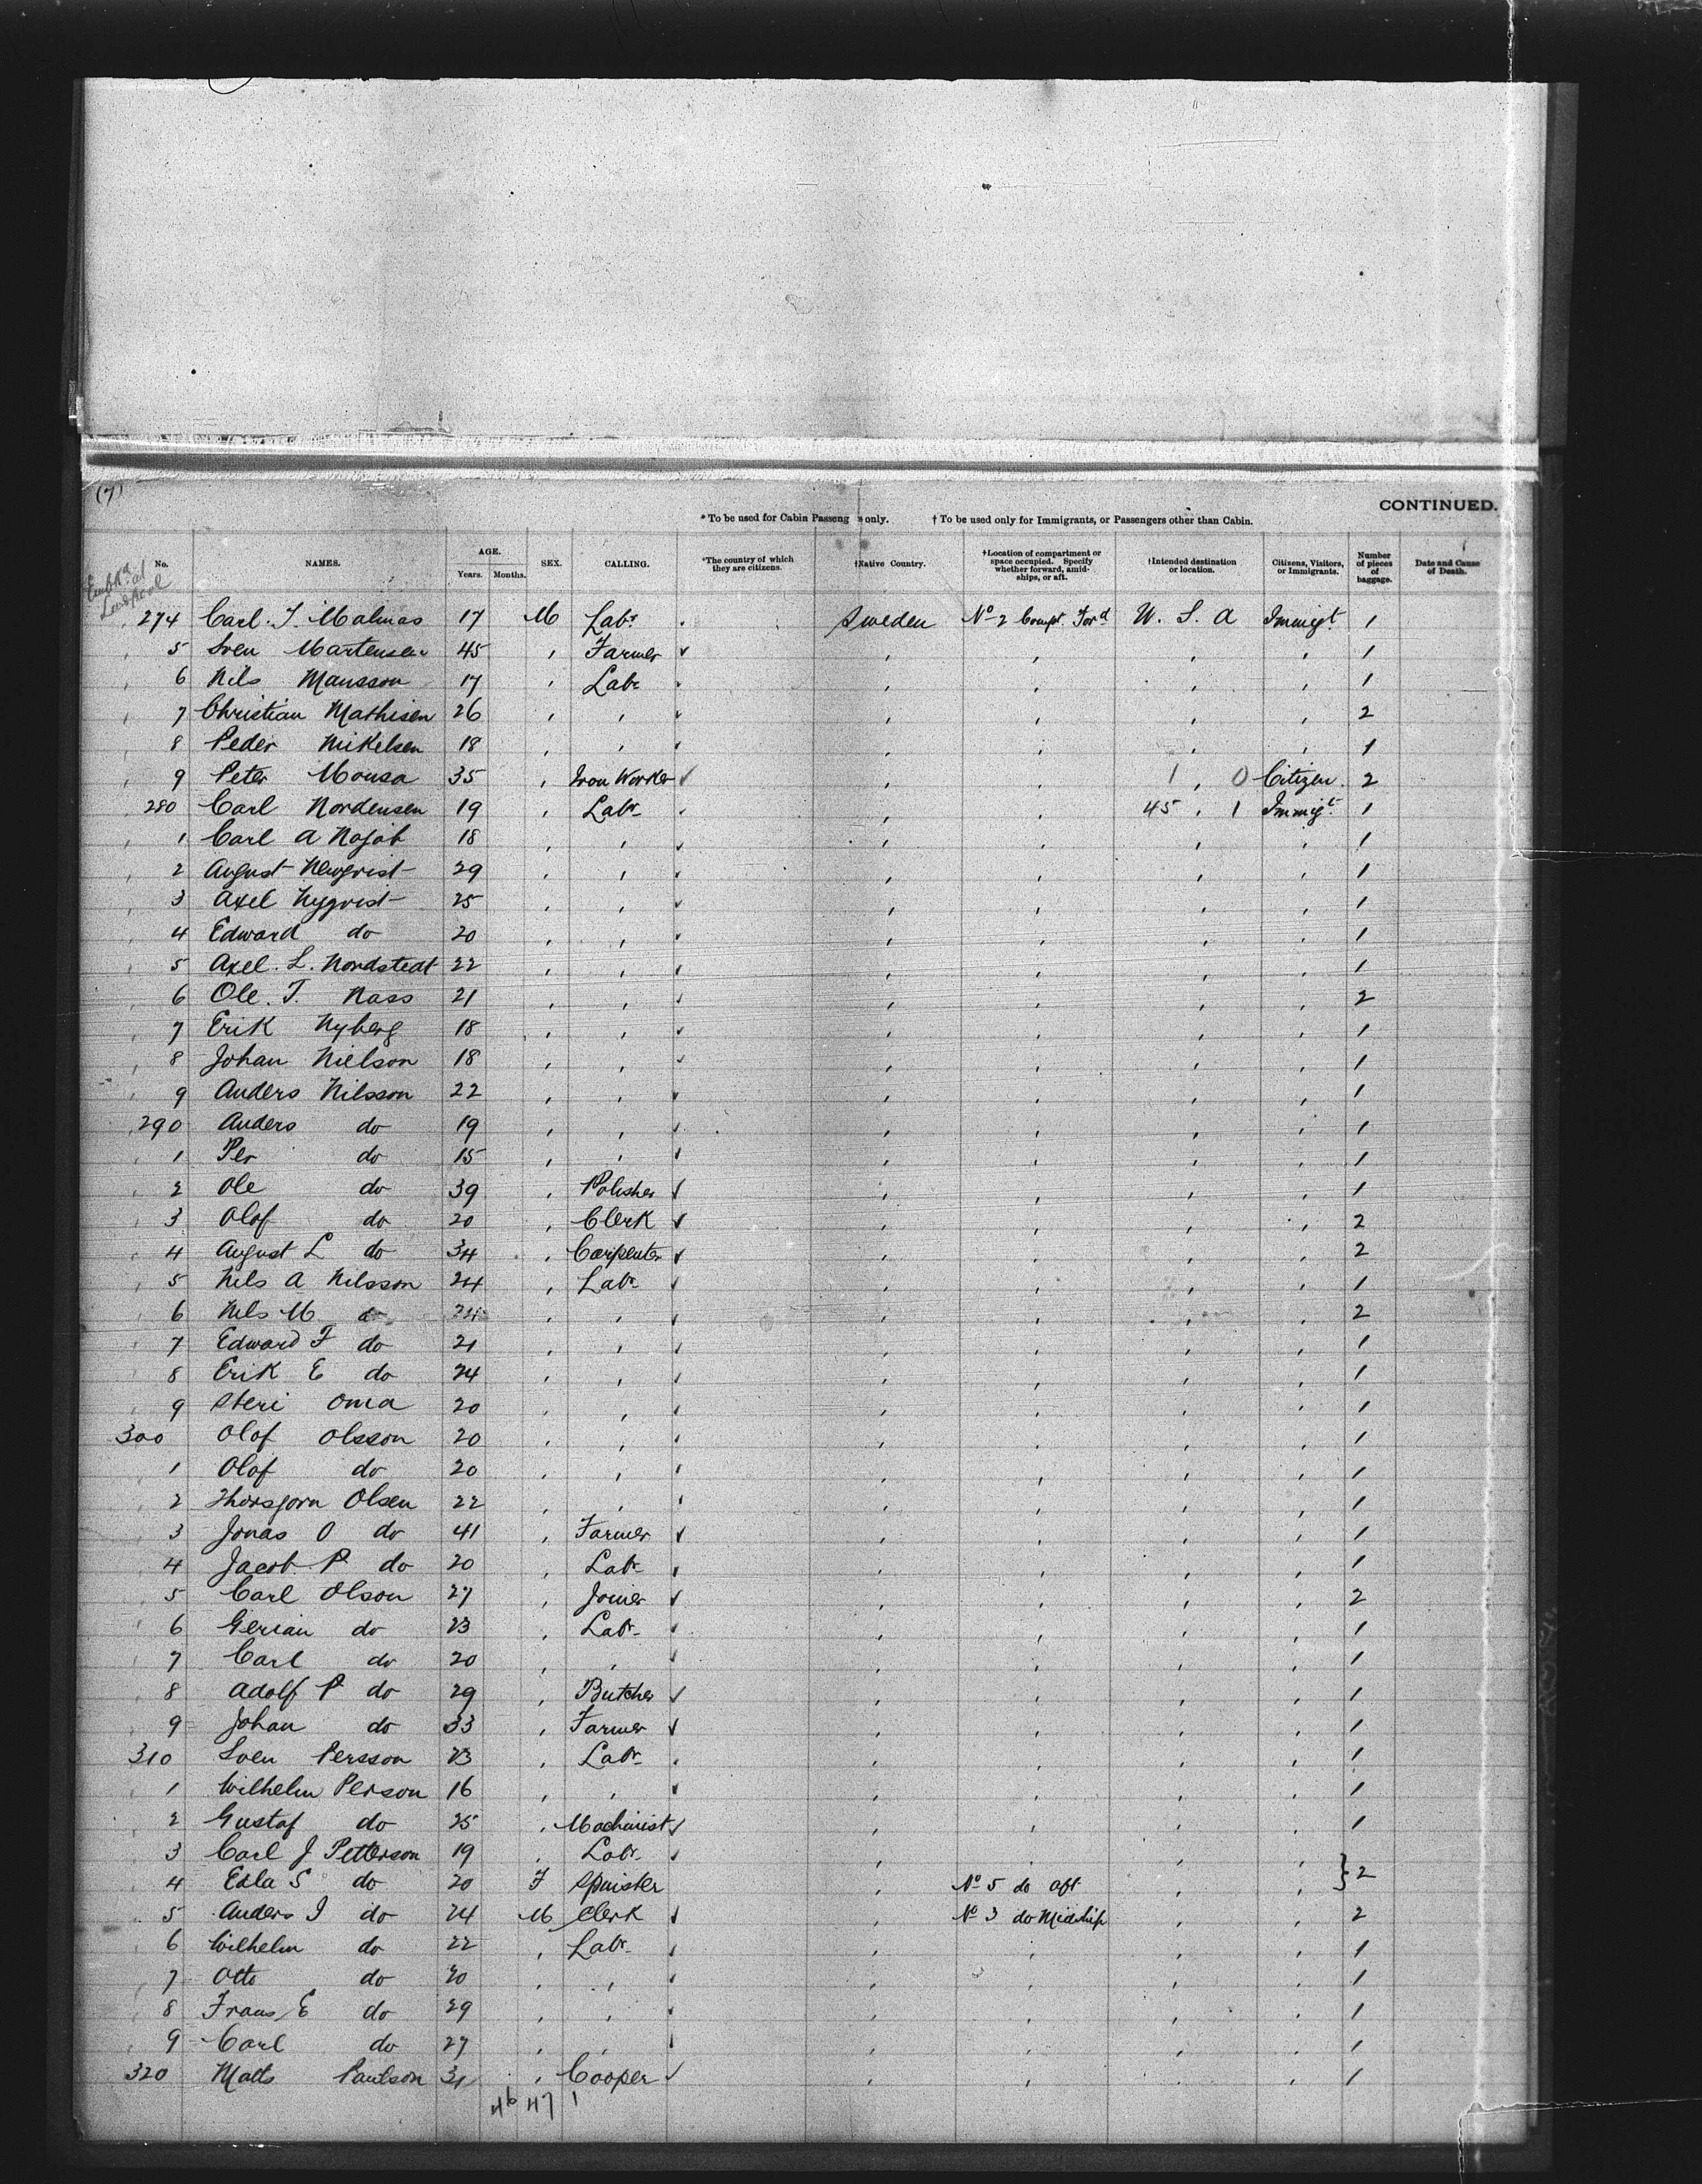 (7)
CONTINUED.
* To be used for Cabin Passeng s only. † To be used only for Immigrants, or Passengers other than Cabin.
Embkd at Liverpool
No. NAMES. AGE. Years. Months. SEX. CALLING. *The country of which they are citizens. †Native Country. †Location of compartment or space occupied. Specify whether forward, amidships, or aft. †Intended destination or location. Citizens, Visitors, or Immigrants. Number of pieces of baggage. Date and Cause of Death.
274 Carl. J. Malmas 17 M Labr Sweden No 2 Compt. Ford U. S. A Immigt. 1
" 5 Sven Martensen 45 " Farmer " " " " 1
" 6 Nils Mansson 17 " Labr " " " " 1
" 7 Christian Mathisen 26 " " " " " " 2
" 8 Peder Mikelsen 18 " " " " " " 1
" 9 Peter Mousa 35 " Iron Worker " " 1 " 0 Citizen. 2
280 Carl Nordensen 19 " Labr " " 45 " 1 Immigt. 1
" 1 Carl A Najob 18 " " " " " " 1
" 2 August Newqvist 29 " " " " " " 1
" 3 Axel Nyqvist 25 " " " " " " 1
" 4 Edward do 20 " " " " " " 1
" 5 Axel. L. Nordstedt 22 " " " " " " 1
" 6 Ole. T. Nass 21 " " " " " " 2
" 7 Erik Nyberg 18 " " " " " " 1
" 8 Johan Nielson 18 " " " " " " 1
" 9 Anders Nilsson 22 " " " " " " 1
290 Anders do 19 " " " " " " 1
" 1 Per do 15 " " " " " " 1
" 2 Ole do 39 " Polisher " " " " 1
" 3 Olof do 20 " Clerk " " " " 2
" 4 August L do 34 " Carpenter " " " " 2
" 5 Nils A Nilsson 24 " Labr " " " " 1
" 6 Nils M do 24 " " " " " " 2
" 7 Edward F do 21 " " " " " " 1
" 8 Erik E do 24 " " " " " " 1
" 9 Steri Oma 20 " " " " " " 1
300 Olof Olsson 20 " " " " " " 1
" 1 Olof do 20 " " " " " " 1
" 2 Thorsjorn Olsen 22 " " " " " " 1
" 3 Jonas O do 41 " Farmer " " " " 1
" 4 Jacob P do 20 " Labr " " " " 1
" 5 Carl Olson 27 " Joiner " " " " 2
" 6 Gerian do 23 " Labr " " " " 1
" 7 Carl do 20 " " " " " " 1
" 8 Adolf P do 29 " Butcher " " " " 1
" 9 Johan do 33 " Farmer " " " " 1
310 Sven Persson 23 " Labr " " " " 1
" 1 Wilhelm Person 16 " " " " " " 1
" 2 Gustaf do 25 " Machinist " " " " 1
" 3 Carl J Petterson 19 " Labr " " " " } 2
" 4 Edla S do 20 F Spinster " No 5 do aft " "
" 5 Anders J do 24 M Clerk " No 3 do Midship " " 2
" 6 Wilhelm do 22 " Labr " " " " 1
" 7 Otto do 20 " " " " " " 1
" 8 Frans E do 29 " " " " " " 1
" 9 Carl do 27 " " " " " " 1
320 Matts Paulson 31 " Cooper " " " " 1
46 47 1